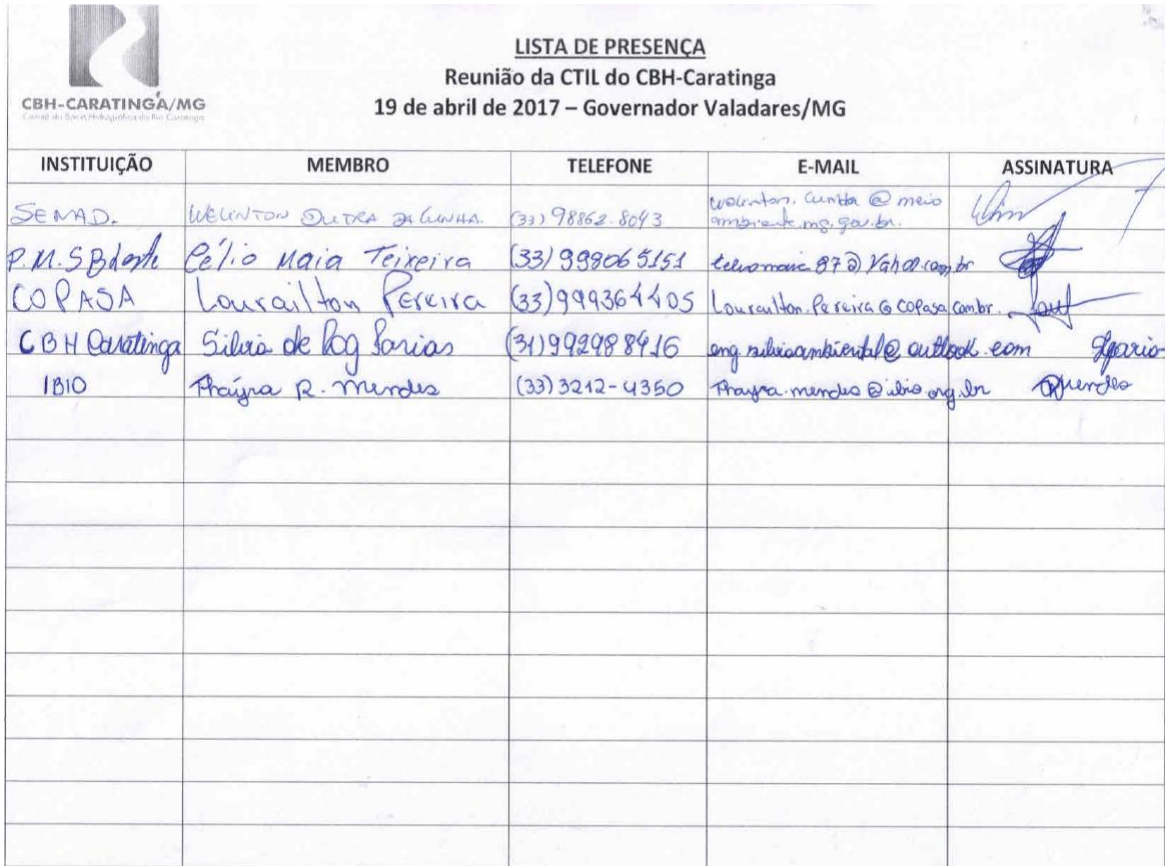 CBH-CARATINGA/MG
Comitê da Bacia Hidrográfica do Rio Caratinga
LISTA DE PRESENÇA
Reunião da CTIL do CBH-Caratinga
19 de abril de 2017 – Governador Valadares/MG
INSTITUIÇÃO MEMBRO TELEFONE E-MAIL ASSINATURA
SEMAD. WELINTON DUTRA DA CUNHA. (33) 98862-8043 welinton.cunha@meio
ambiente.mg.gov.br.
P.M.SBdeste Célio Maia Teixeira (33) 998065151 87@yahoo.com.br
COPASA Lourailton Pereira (33) 999364405 Lourailton.Pereira@copasa.com.br.
CBH Caratinga Silvia de Farias (31) 992988416 eng.silviaambiental@outlook.com
IBIO Thayra R. Mendes (33) 3212-4350 thayra.mendes@ibio.org.br Mendes